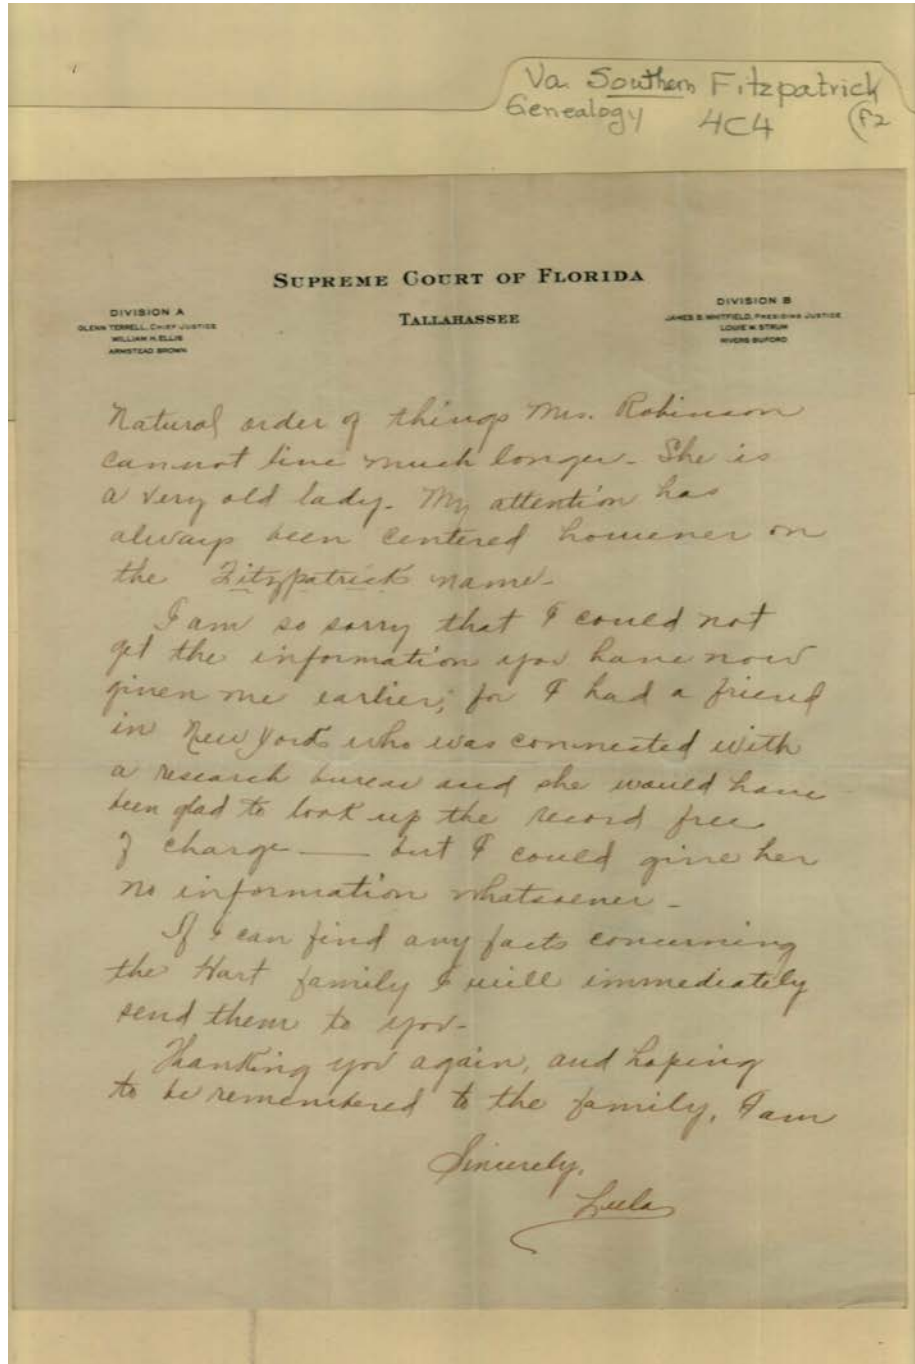 Va. Southern Fitzpatrick
Genealogy 4C4 (F2
SUPREME COURT OF FLORIDA
TALLAHASSEE
DIVISION A
GLENN TERRELL, CHIEF JUSTICE
WILLIAM H. ELLIS
ARMSTEAD BROWN
DIVISION B
JAMES B. WHITFIELD, PRESIDING JUSTICE
LOUIE W. STRUM
RIVERS BUFORD
Natural order of things Mrs. Robinson
cannot live much longer. She is
a very old lady. My attention has
always been centered however on
the Fitzpatrick name.
I am so sorry that I could not
get the information you have now
given me earlier; for I had a friend
in New York who was connected with
a research bureau and she would have
been glad to look up the record free
of charge — but I could give her
no information whatsoever.
If I can find any facts concerning
the Hart family I will immediately
send them to you.
Thanking you again, and hoping
to be remembered to the family, I am
Sincerely,
Lula